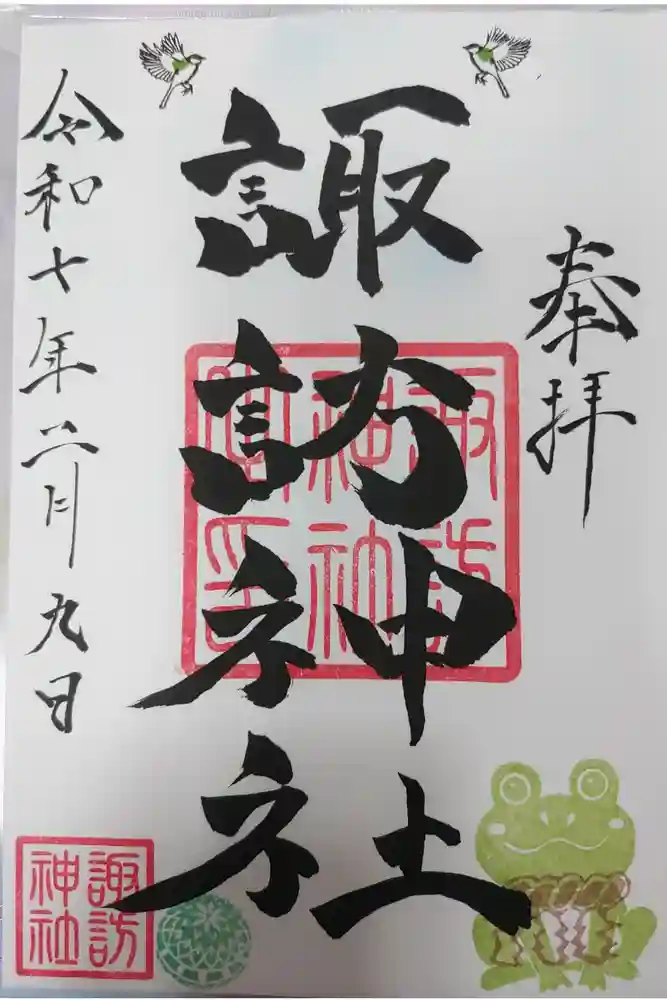 奉拝
諏訪神社
令和七年二月九日
諏訪
神社
諏訪
神社